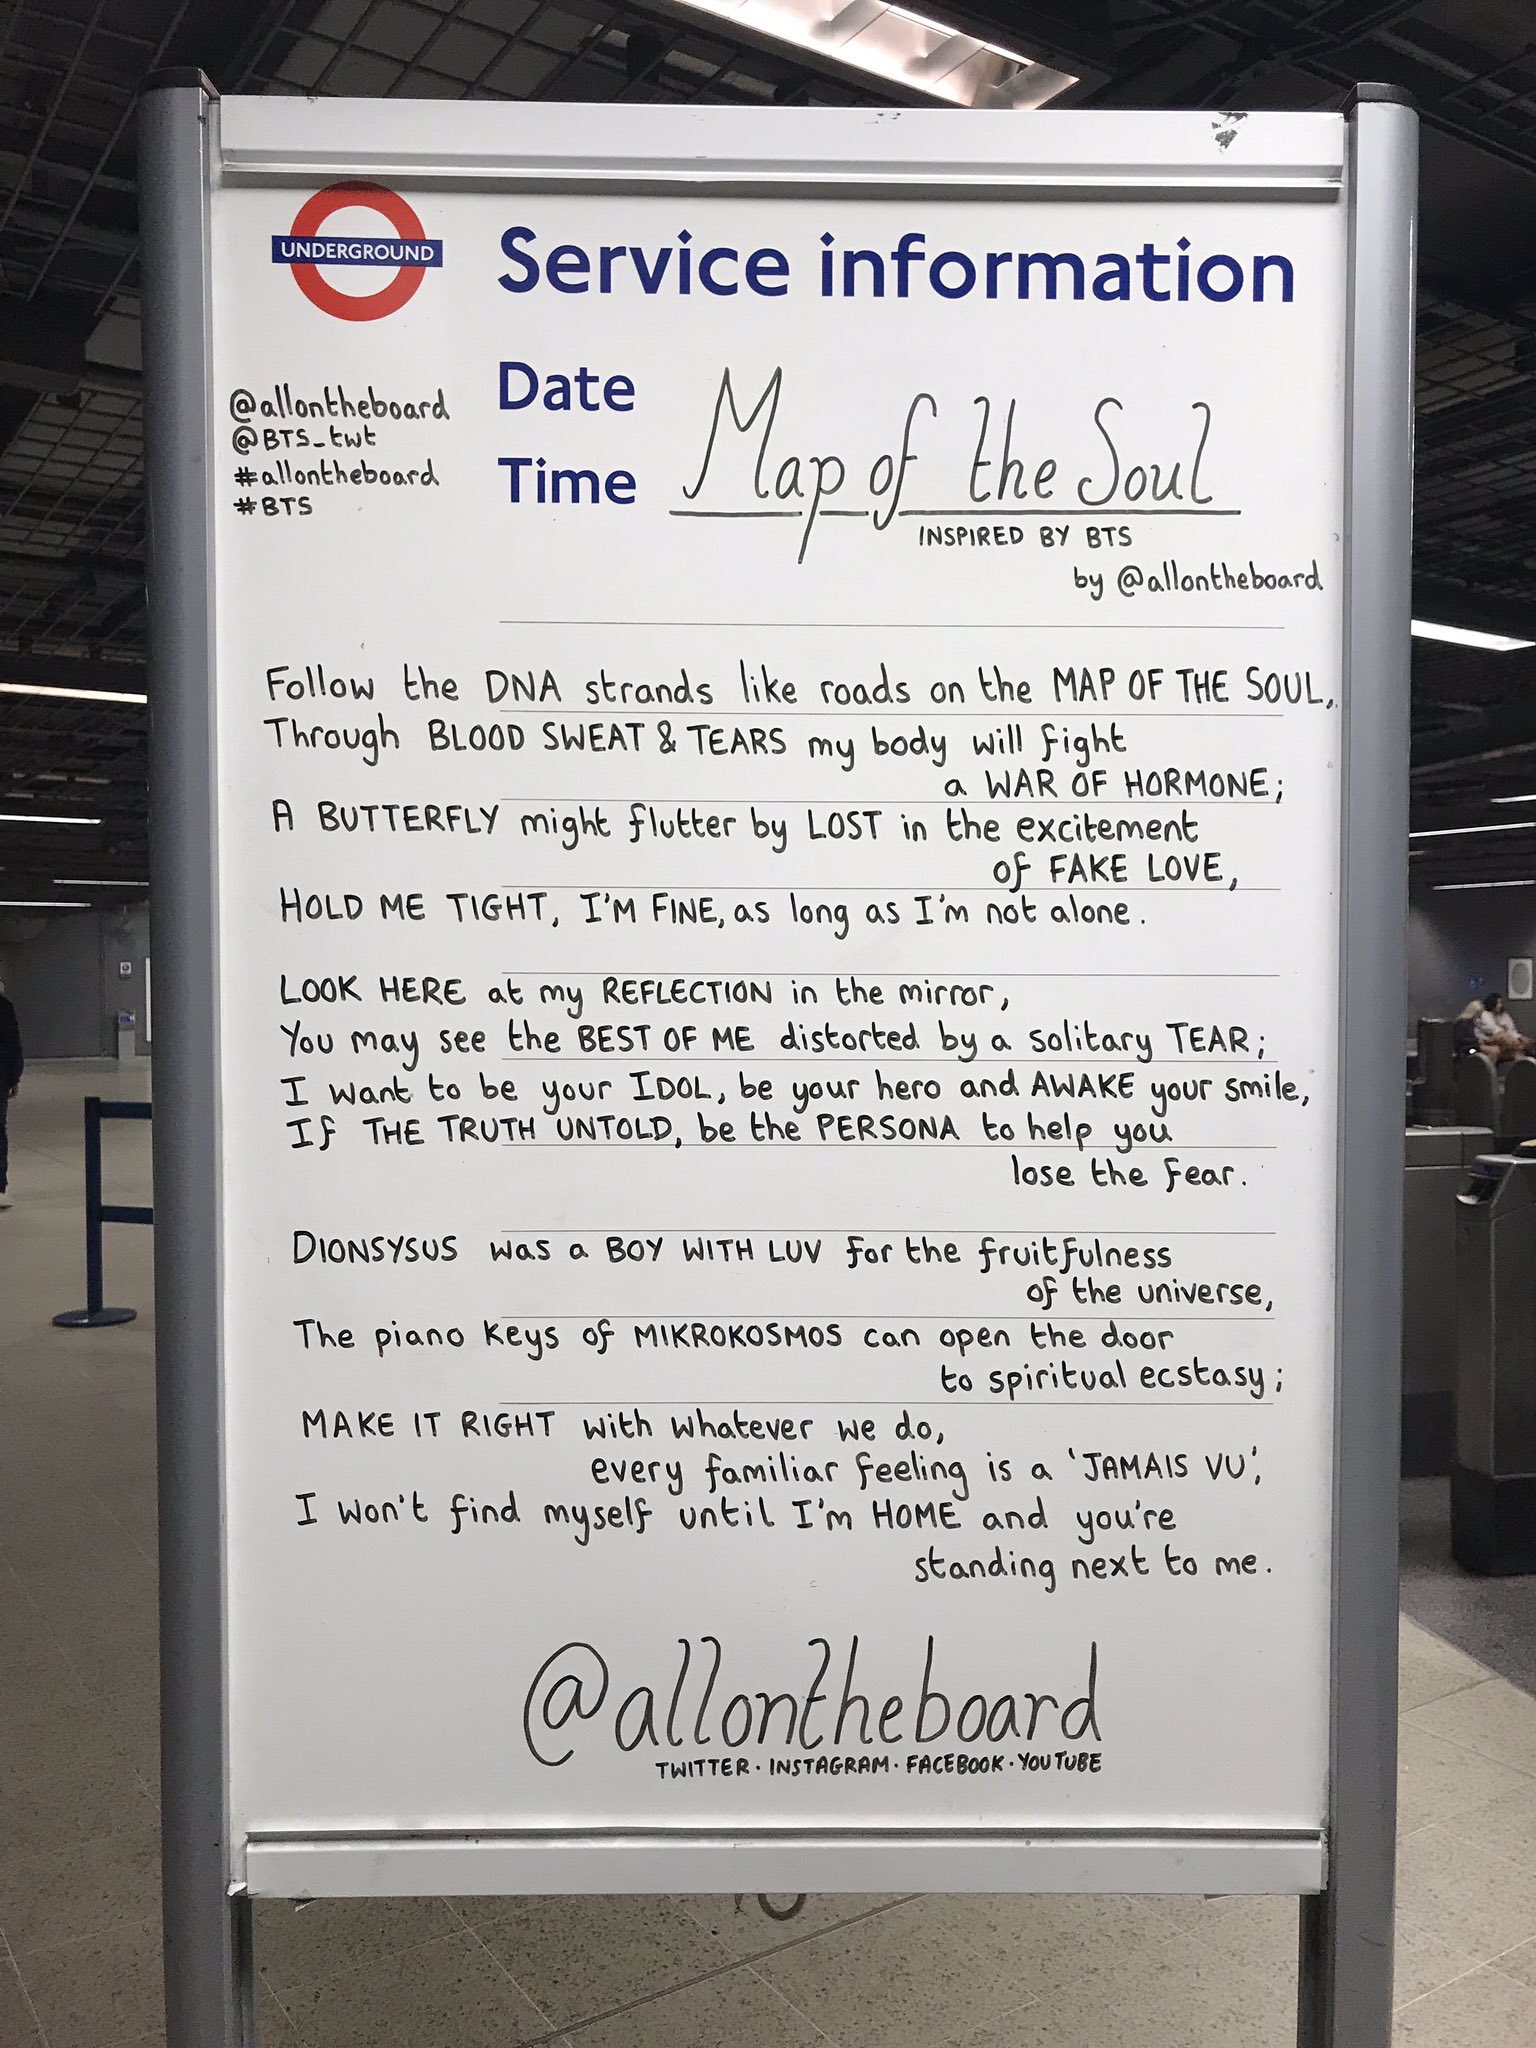 UNDERGROUND
Service information
Date
Time
@allontheboard
@BTS_twt
#allontheboard
#BTS
Map of the Soul
INSPIRED BY BTS
by @allontheboard
Follow the DNA strands like roads on the MAP OF THE SOUL,
Through BLOOD SWEAT & TEARS my body will fight
a WAR OF HORMONE;
A BUTTERFLY might flutter by LOST in the excitement
of FAKE LOVE,
HOLD ME TIGHT, I'M FINE, as long as I'm not alone.
LOOK HERE at my REFLECTION in the mirror,
You may see the BEST OF ME distorted by a solitary TEAR;
I want to be your IDOL, be your hero and AWAKE your smile,
If THE TRUTH UNTOLD, be the PERSONA to help you
lose the fear.
DIONSYSUS was a BOY WITH LUV for the fruitfulness
of the universe,
The piano keys of MIKROKOSMOS can open the door
to spiritual ecstasy;
MAKE IT RIGHT with whatever we do,
every familiar feeling is a 'JAMAIS VU',
I won't find myself until I'm HOME and you're
standing next to me.
@allontheboard
TWITTER · INSTAGRAM · FACEBOOK · YOUTUBE